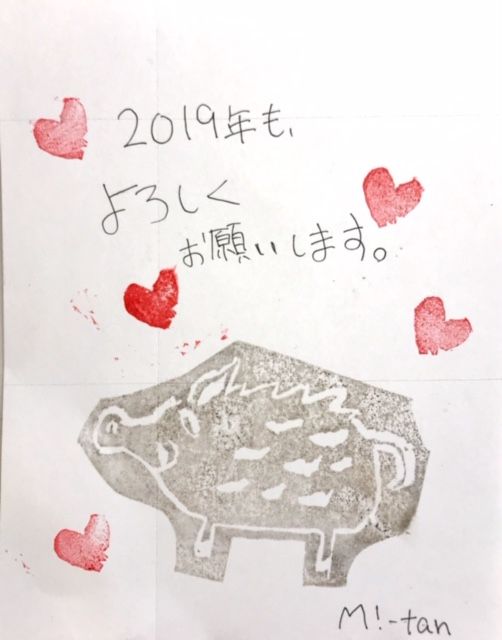 2019年も、
よろしく
お願いします。
M!-tan